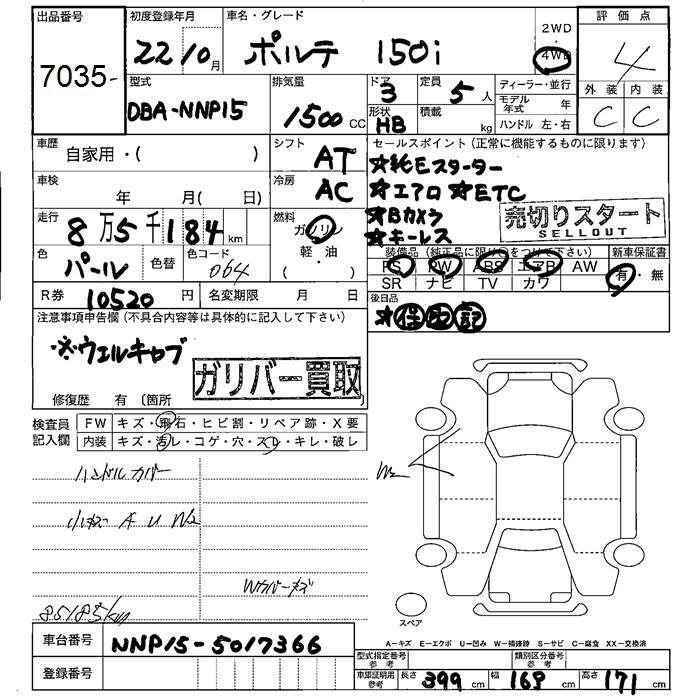 出品番号
7035-
初度登録年月
22 10月
車名・グレード
ポルテ 150i
2WD
・
4WD
評価点
4
外装 内装
C C
型式
DBA-NNP15
排気量
1500 CC
ドア
3
形状
HB
定員
5 人
積載
kg
ディーラー・並行
モデル年式 年
ハンドル 左・右
車歴
自家用・( )
シフト
AT
セールスポイント (正常に機能するものに限ります)
☆純Eスターター
☆エアロ ☆ETC
☆Bカメラ
☆キーレス
売切りスタート
SELLOUT
車検
年 月( 日)
冷房
AC
走行
8万5千184 km
燃料
ガソリン
( 軽・油 )
色
パール
色替
色コード
064
装備品 (純正品に限り○をつけて下さい)
PS PW ABS エアB AW
SR ナビ TV カワ
新車保証書
有・無
R券 10520 円
名変期限 月 日
後日品
☆保取記
注意事項申告欄 (不具合内容等は具体的に記入して下さい)
※ウェルキャブ
ガリバー買取
修復歴 有 (箇所 )
検査員記入欄
FW キズ・飛石・ヒビ割・リペア跡・X要
内装 キズ・汚レ・コゲ・穴・スレ・キレ・破レ
ハンドルカバー
小キズ A U W2
W2
85185km
スペア
A−キズ E−エクボ U−凹み W−補修跡 S−サビ C−腐食 XX−交換済
車台番号 NNP15-5017366
登録番号
型式指定番号 参考
類別区分番号 参考
車庫証明用 参考
長さ 399 cm 幅 169 cm 高さ 171 cm